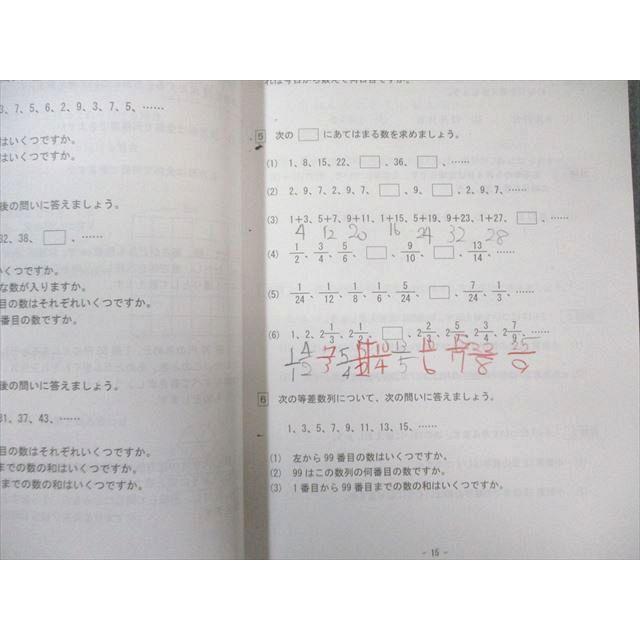 3、7、5、6、2、9、3、7、5、……
はいくつですか。
はいくつですか。
後の問いに答えましょう。
32、38、□、……
いくつですか。
な数が入りますか。
目の数はそれぞれいくつですか。
番目の数ですか。
後の問いに答えましょう。
31、37、43、……
目の数はそれぞれいくつですか。
までの数の和はいくつですか。
までの数の和はいくつですか。
れは今日から数えて何日目ですか。
5 次の□にあてはまる数を求めましょう。
(1) 1、8、15、22、□、36、□、……
(2) 2、9、7、2、9、7、□、9、□、2、9、7、……
(3) 1+3、5+7、9+11、1+15、5+19、9+23、1+27、□、……
4 12 20 16 24 32 28
(4) 1/2、3/4、5/6、□、9/10、□、13/14、……
(5) 1/24、1/12、1/8、1/6、5/24、□、7/24、1/3、……
(6) 1、2、2 1/3、2 1/2、□、2 2/3、2 5/7、2 3/4、2 7/9、……
6 次の等差数列について、次の問いに答えましょう。
1、3、5、7、9、11、13、15、……
(1) 左から99番目の数はいくつですか。
(2) 99はこの数列の何番目の数ですか。
(3) 1番目から99番目までの数の和はいくつですか。
- 15 -